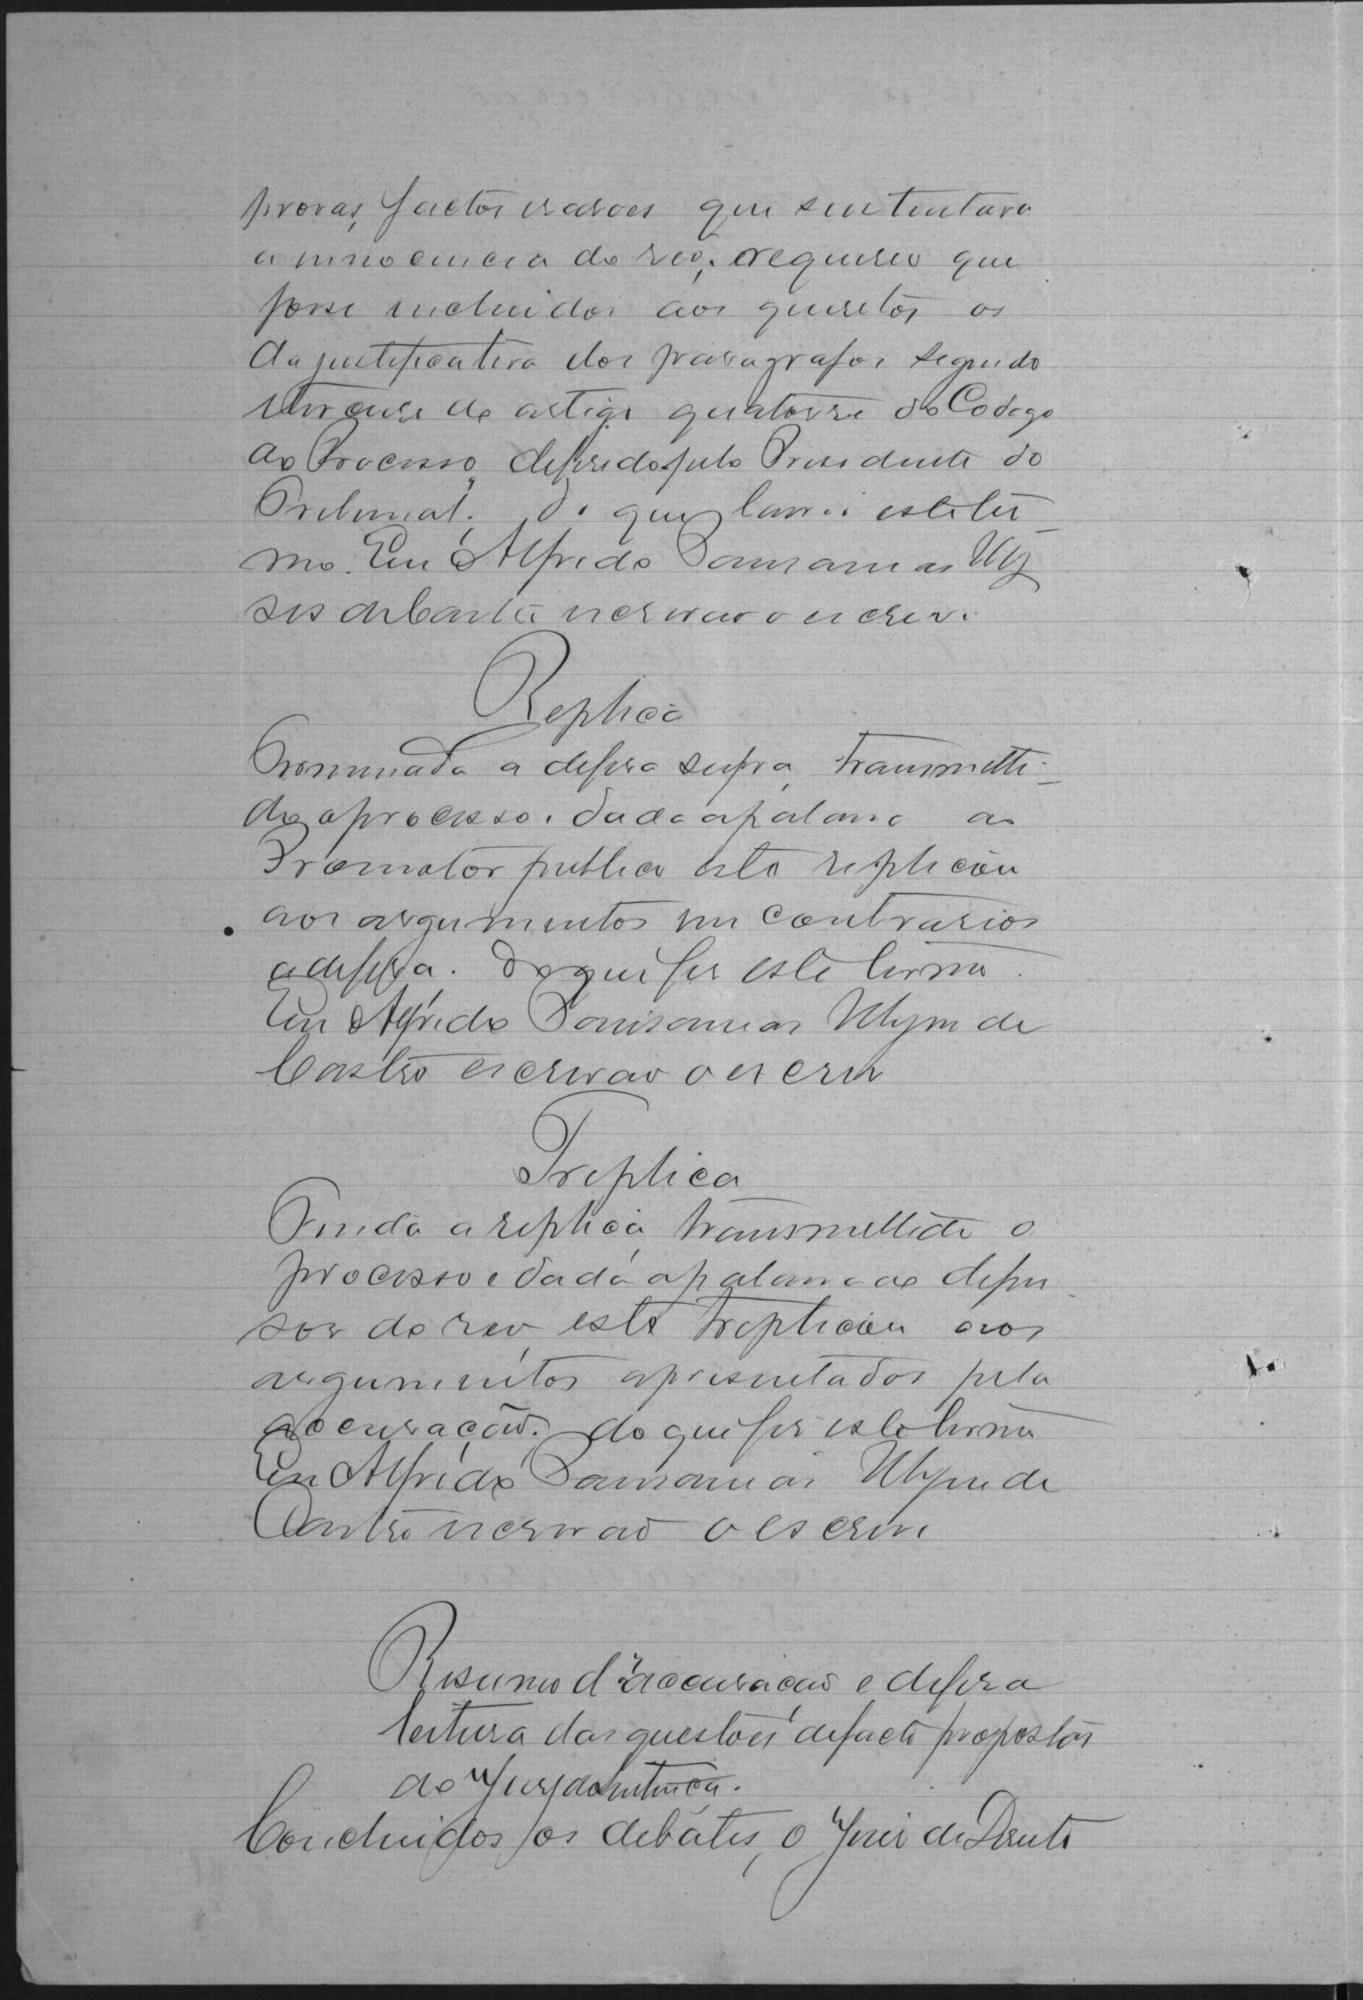 provas, factos e rasoes que sustentava
a innocencia do réo; e requereu que
fosse incluidos aos quesitos os
da justificativa dos paragrafos segundo
do artigo quatorse do Codego
do Processo, deferido pelo Presidente do
Tribunal. Do que, lavrei este ter-
mo. Eu Alfredo Pausanias Uly
ses de Castro escrivão o escrevi
Replica
Terminada a defesa supra, transmetti-
do o processo e dada a palavra ao
Promotor publico este replicou
aos argumentos em contrarios
a defesa. Do que fis este termo.
Eu Alfredo Pausanias Ulyses de
Castro escrivão o escrevi
Treplica
Finda a replica, transmettido o
processo e dada a palavra ao defen-
sor do réo, este treplicou aos
argumentos apresentados pela
accusação. do que fis este termo
Eu Alfredo Pausanias Ulyses de
Castro escrivão o escrevi
Resumo d'accusacão e defesa
leitura das questões de facto propostas
ao Jury de Sentença.
Concluidos os debates, o Juis de Direito